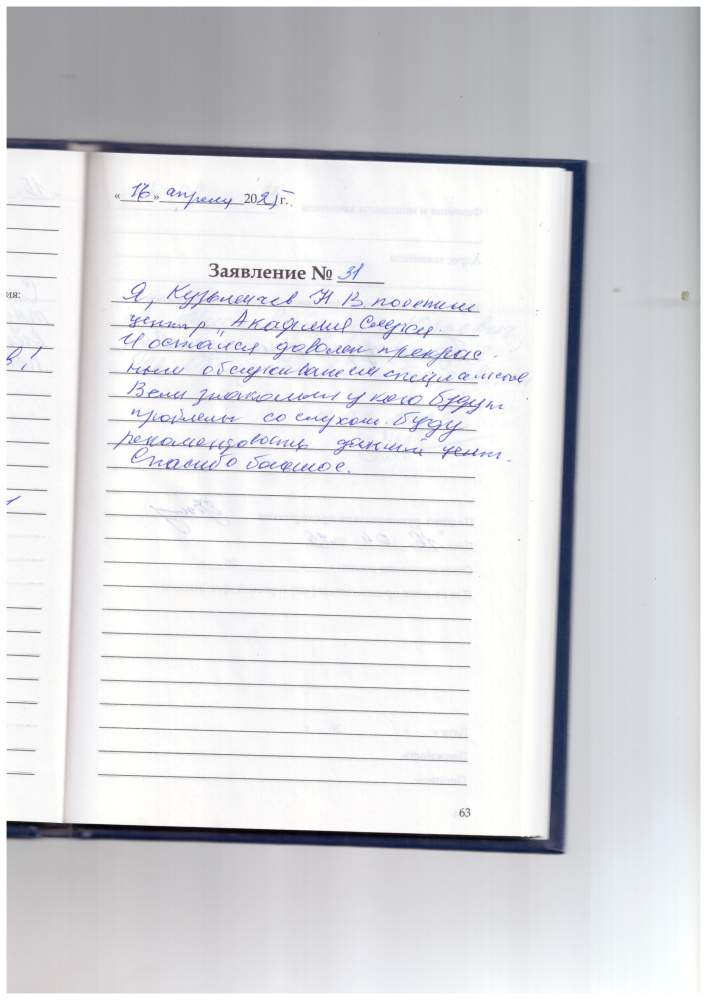 «16» апрель 2025 г.
Заявление № 31
Я, Кузьмичев Н.В посетил
центр „Академия Слуха.
И остался доволен прекрас-
ным обслуживанием специалистов
Если знакомым у кого будут
проблемы со слухом. буду
рекомендовать данный центр.
Спасибо большое.
63
ия: